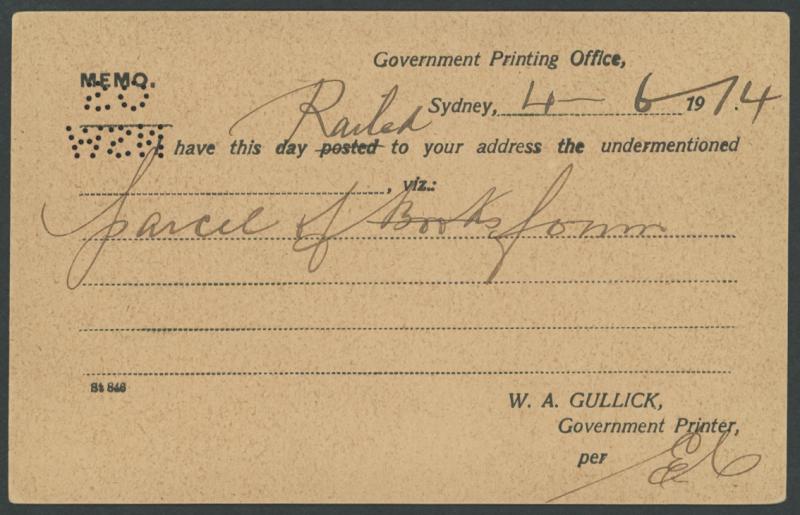 Government Printing Office,
MEMO.
Sydney, 4 - 6 1914
Railed
have this day posted to your address the undermentioned
, viz.:
parcel of Books forms
St 846
W. A. GULLICK,
Government Printer,
per